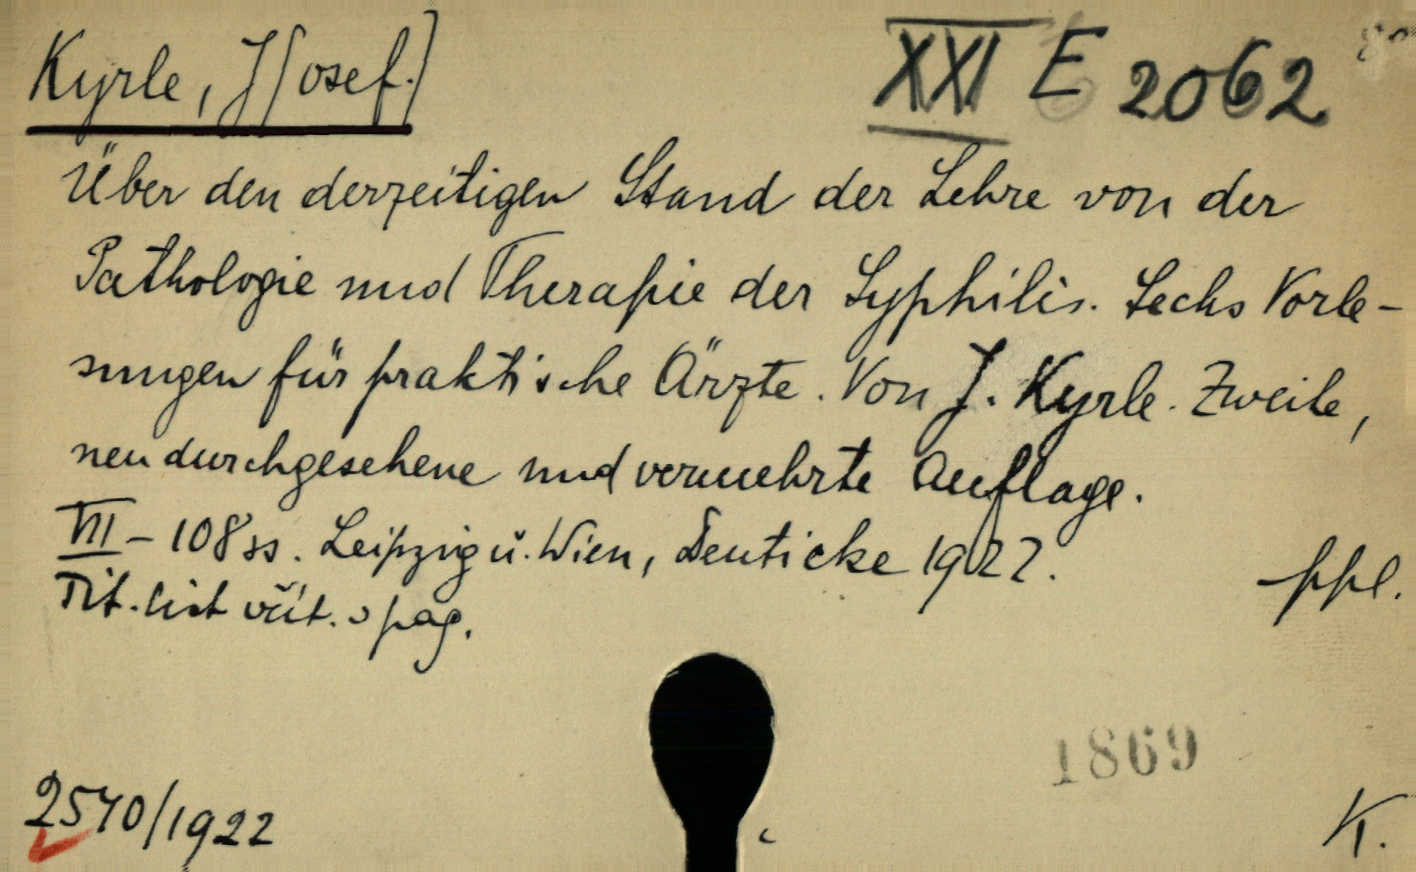 Kyrle, J[osef.]
XXI E 2062
8°
Über den derzeitigen Stand der Lehre von der
Pathologie und Therapie der Syphilis. Sechs Vorle-
sungen für praktische Ärzte. Von J. Kyrle. Zweite,
neu durchgesehene und vermehrte Auflage.
VII – 108 ss. Leipzig u. Wien, Deuticke 1922.
ppl.
Tit. list včít. v pag.
1869
2570/1922
K.